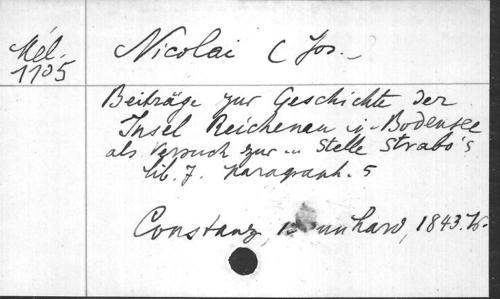 Mél.
1105
Nicolai (Jos.
Beiträge zur Geschichte der
Insel Reichenau i. Bodensee
als Versuch zur Stelle Strabo's
lib. 7. paragraph. 5
Constanz, 1843.